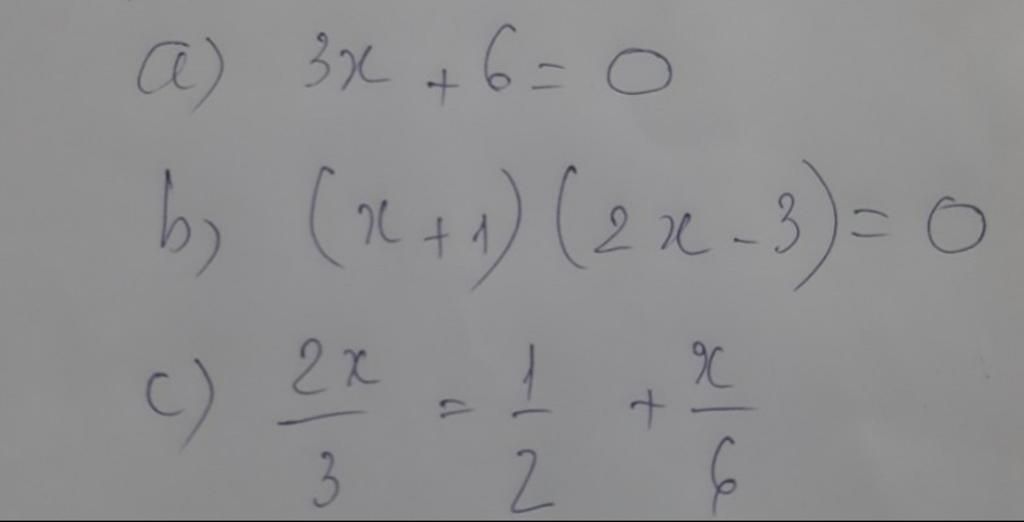 a) 3x + 6 = 0
b) (x + 1) (2x - 3) = 0
c) 2x/3 = 1/2 + x/6